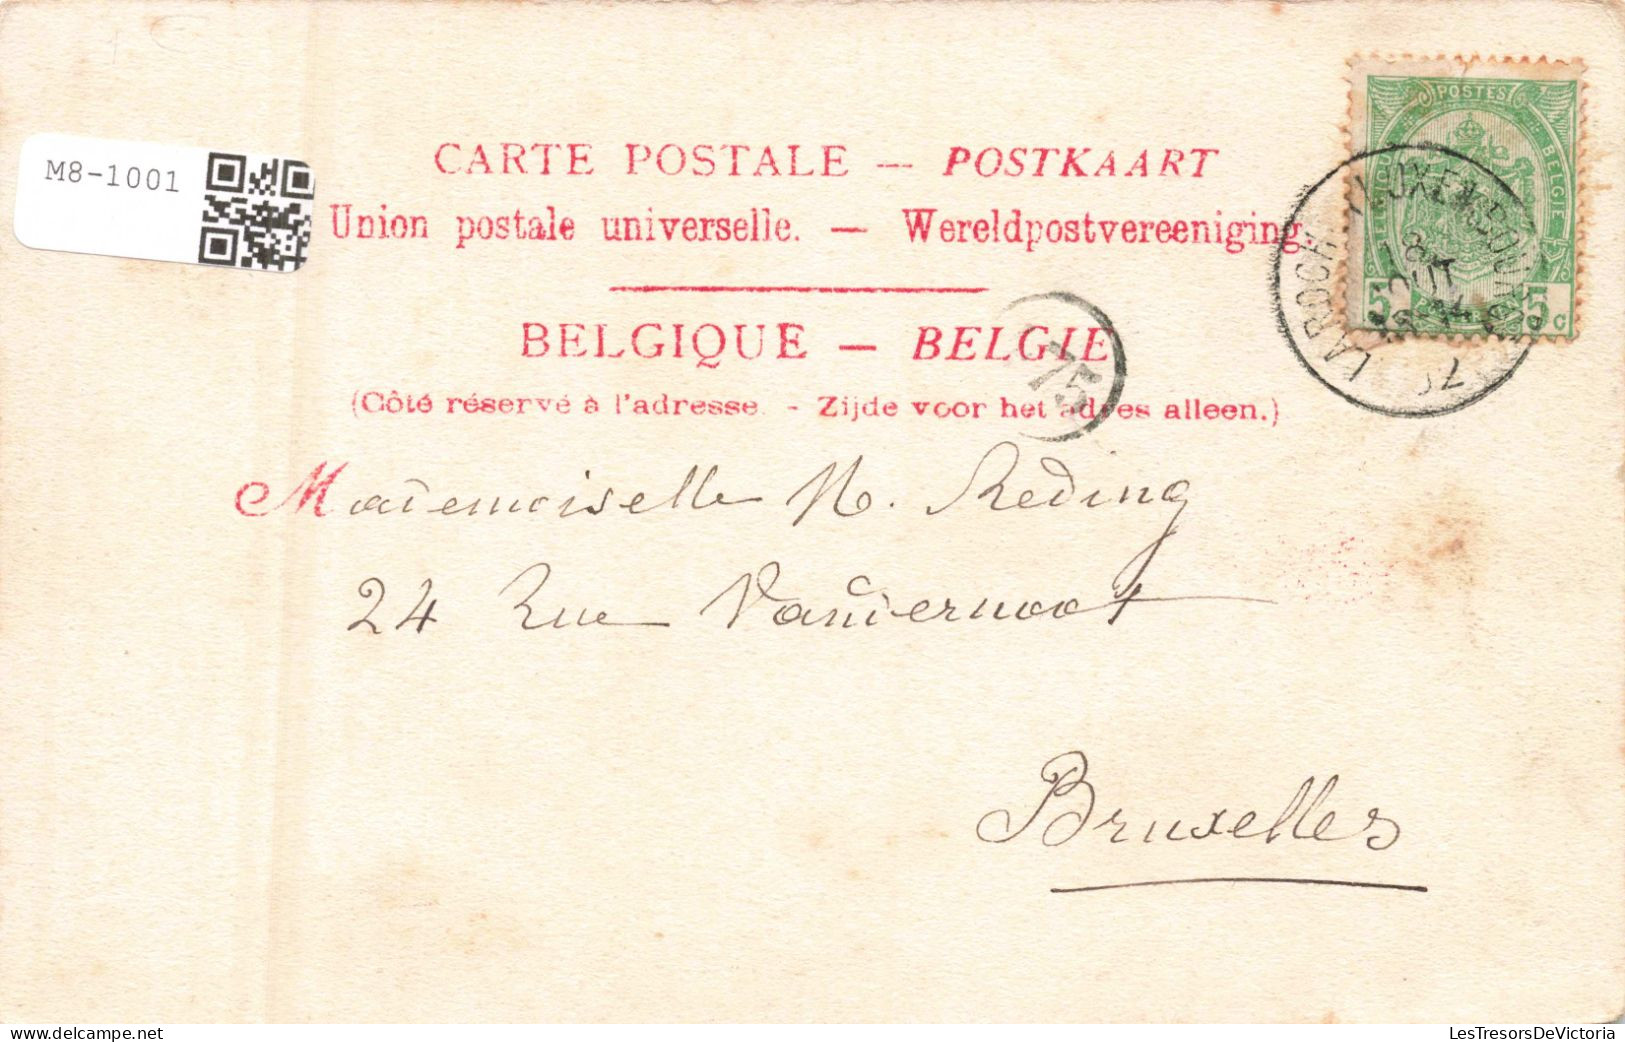 M8-1001
CARTE POSTALE — POSTKAART
Union postale universelle. — Wereldpostvereeniging.
BELGIQUE — BELGIE
(Côté réservé à l'adresse. - Zijde voor het adres alleen.)
POSTES
BELGIQUE
BELGIE
5 c
18
OUT
75
Mademoiselle N. Reding
24 Rue Vandernoot
Bruxelles
LesTresorsDeVictoria